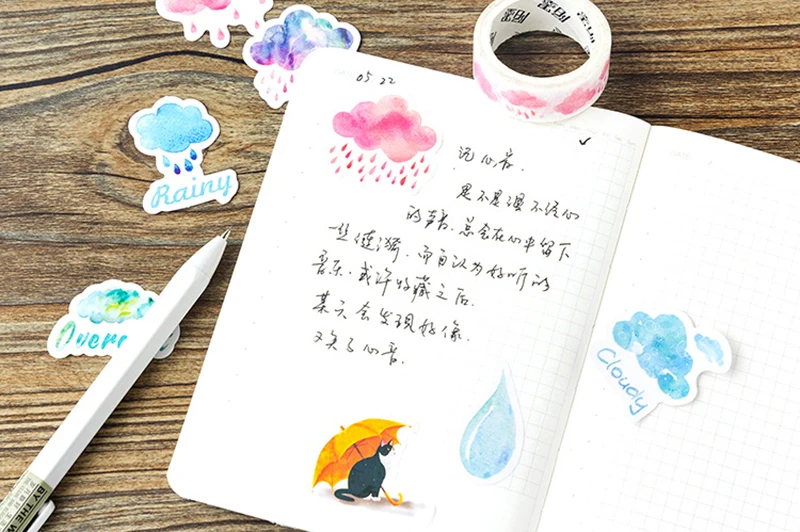 05 22
记心音.
是不是漫不经心
的声音.总会在心中留下
一丝涟漪.而自认为好听的
音乐.或许收藏之后.
某天会发现好像.
又失了心音.
Rainy
Cloudy
BY THE W